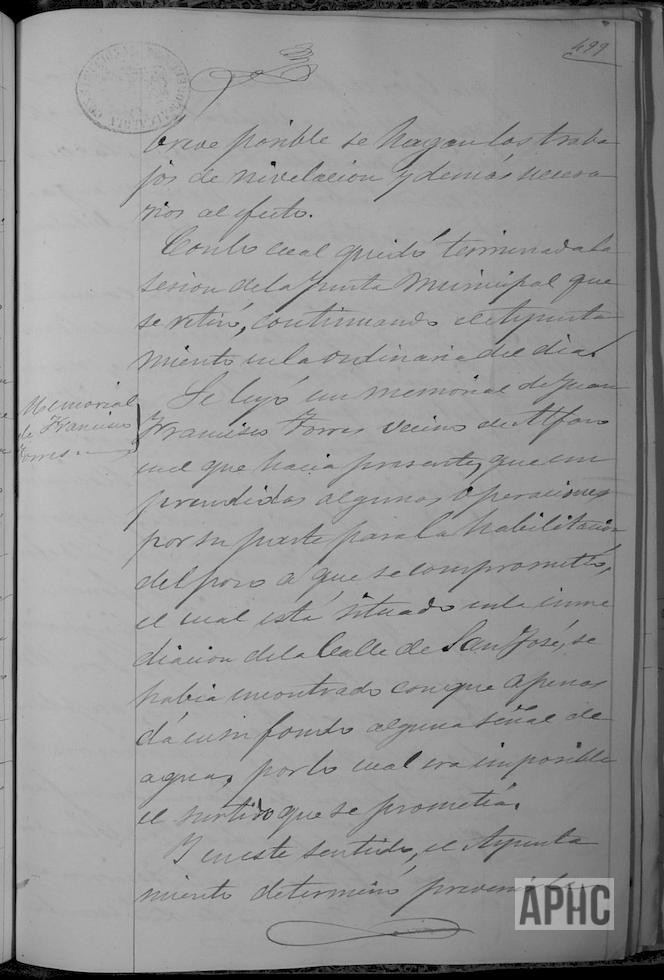 499
breve posible se hagan los traba
jos de nivelacion y demás necesa
rios al efecto.
Con lo cual quedó terminada la
sesion de la Junta Municipal que
se retiró, continuando el Ayunta
miento en la ordinaria del dia.
Memorial
de Francisco
Torres
Se leyó un memorial de Juan
Francisco Torres vecino de Alfaro
en el que hacia presente, que em
prendidas algunas operaciones
por su parte para la habilitacion
del pozo á que se comprometió,
el cual está situado en la inme
diacion de la Calle de San José, se
habia encontrado con que apenas
dá en su fondo alguna señal de
agua, por lo cual era imposible
el surtido que se prometia.
Y en este sentido, el Ayunta
miento determinó
APHC